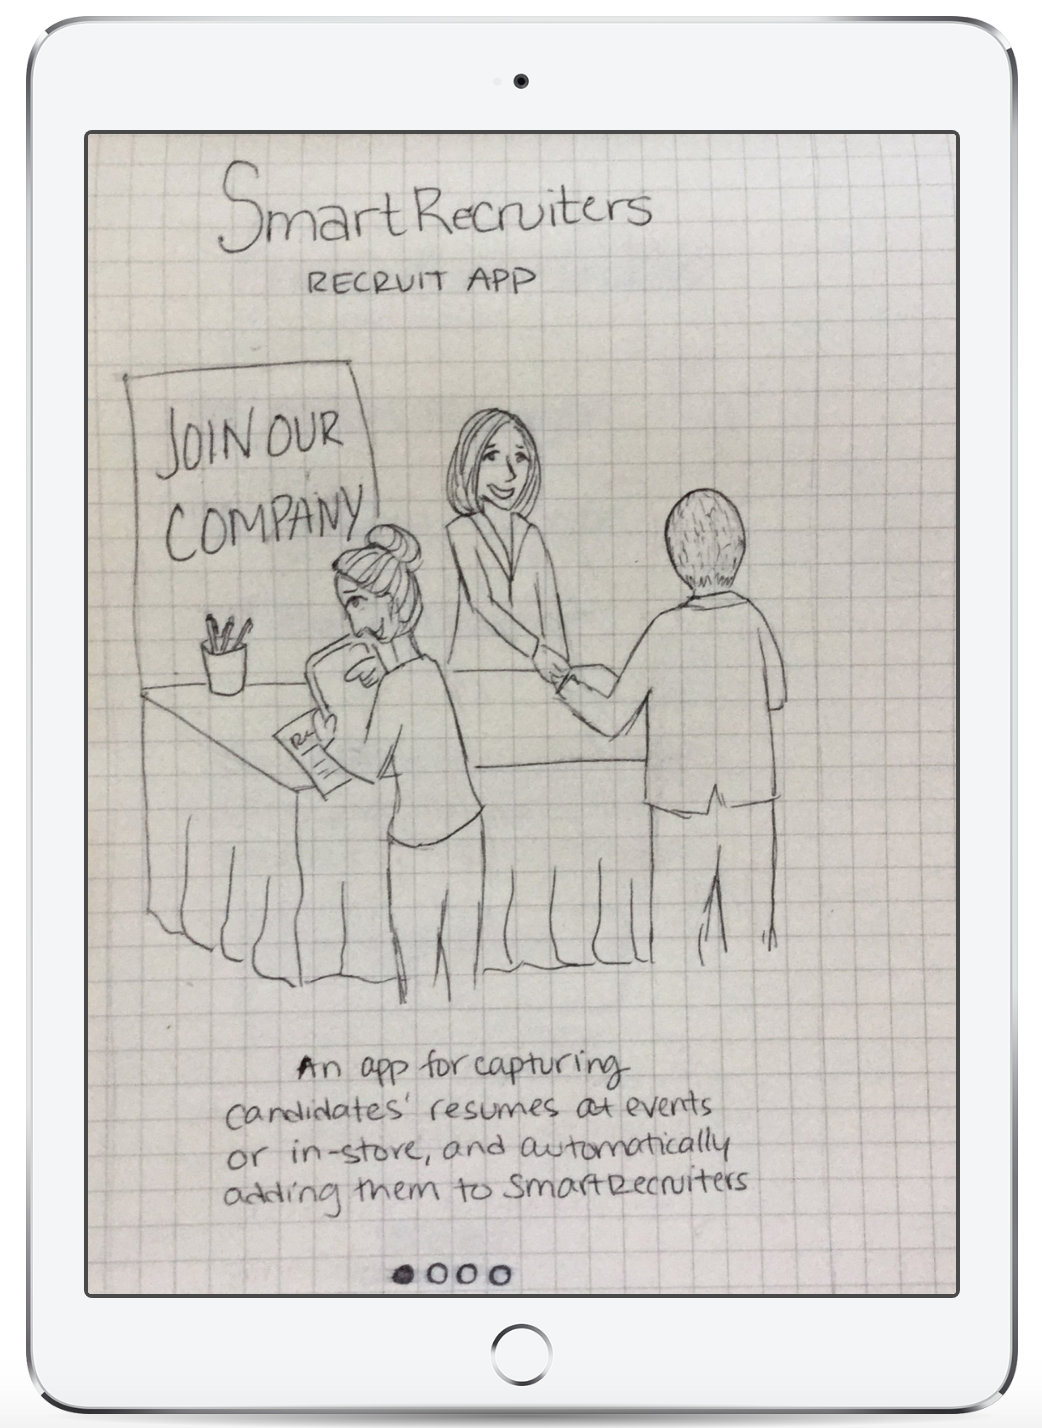 SmartRecruiters
RECRUIT APP
JOIN OUR
COMPANY
An app for capturing
candidates' resumes at events
or in-store, and automatically
adding them to SmartRecruiters